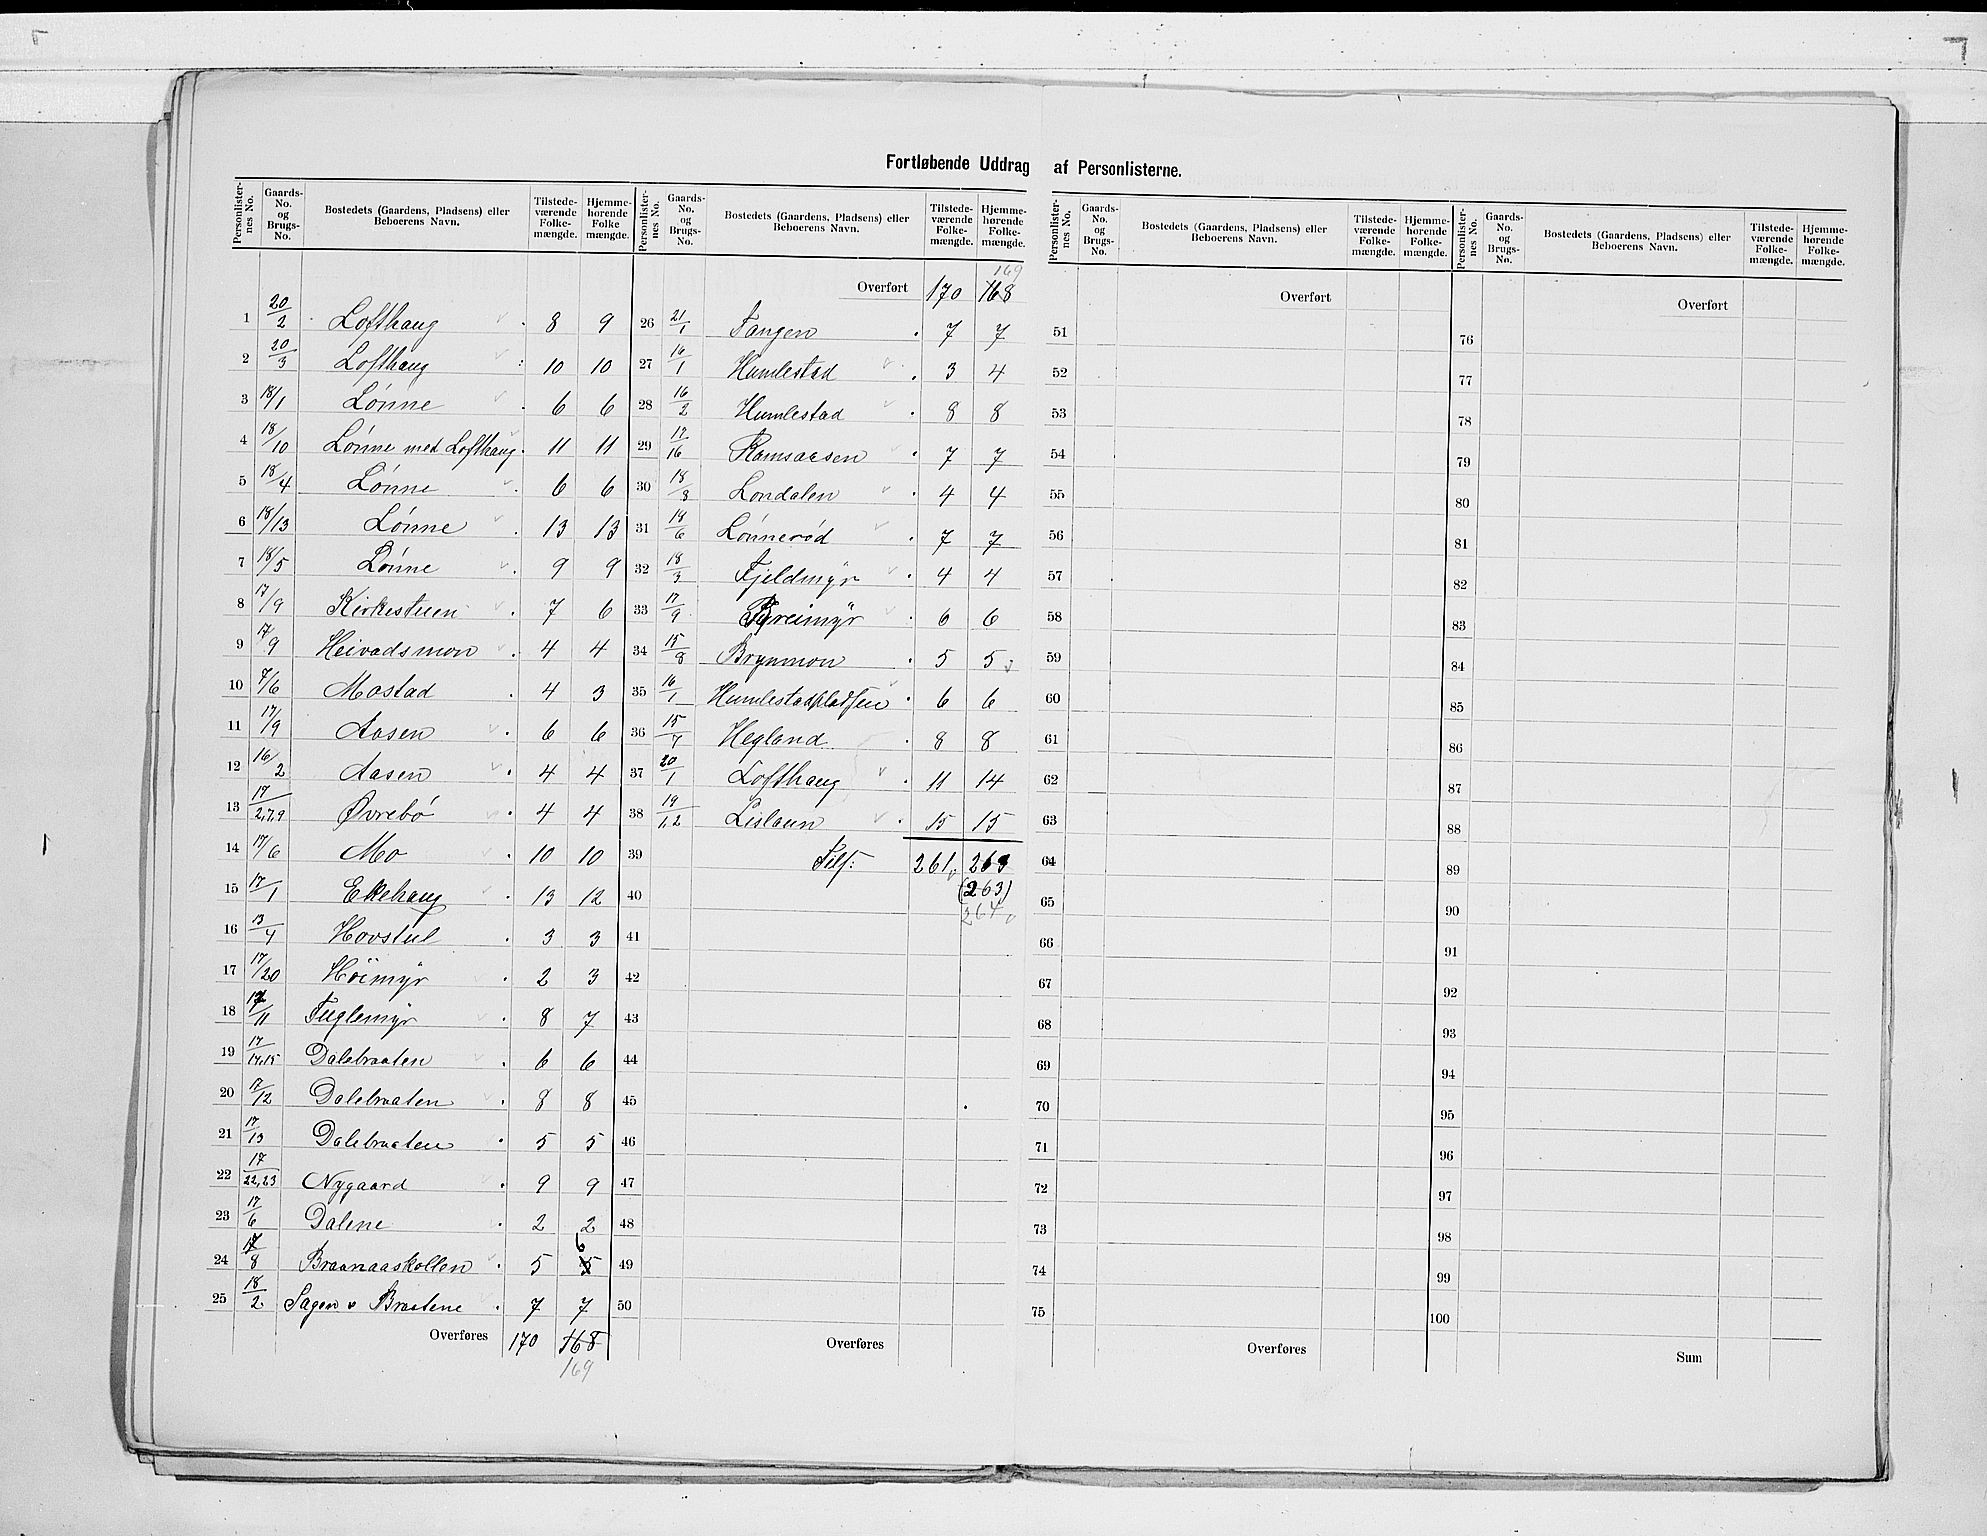 Fortløbende Uddrag af Personlisterne.
Personlister-nes No. | Gaards-No. og Brugs-No. | Bostedets (Gaardens, Pladsens) eller Beboerens Navn. | Tilstede-værende Folke-mængde. | Hjemme-hørende Folke mængde.
1 20/2 Lofthaug 8 9
2 20/3 Lofthaug 10 10
3 18/1 Lønne 6 6
4 18/10 Lønne med Lofthaug 11 11
5 18/4 Lønne 6 6
6 18/13 Lønne 13 13
7 18/5 Lønne 9 9
8 17/9 Kirkestuen 7 6
9 17/9 Heivadsmon 4 4
10 7/6 Mostad 4 3
11 17/9 Aasen 6 6
12 16/2 Aasen 4 4
13 17/2,7,9 Øvrebø 4 4
14 17/6 Mo 10 10
15 17/1 Ekehaug 13 12
16 13/4 Hovstul 3 3
17 17/20 Høimyr 2 3
18 17/11 Fuglemyr 8 7
19 17/14,15 Dalebraaten 6 6
20 17/12 Dalebraaten 8 8
21 17/13 Dalebraaten 5 5
22 17/22,23 Nygaard 9 9
23 17/6 Dalene 2 2
24 17/8 Braanaaskollen 5 5 6
25 18/2 Sagen v Braatene 7 7
Overføres 170 168
169
Personlister-nes No. | Gaards-No. og Brugs-No. | Bostedets (Gaardens, Pladsens) eller Beboerens Navn. | Tilstede-værende Folke-mængde. | Hjemme-hørende Folke-mængde.
169
Overført 170 168
26 21/1 Tangen 7 7
27 16/1 Humlestad 3 4
28 16/2 Humlestad 8 8
29 17/16 Ramsaasen 7 7
30 18/8 Londalen 4 4
31 18/6 Lønnerød 7 7
32 18/3 Fjeldmyr 4 4
33 17/9 Breimyr 6 6
34 15/8 Brynmon 5 5
35 16/1 Humlestadpladsen 6 6
36 15/7 Hegland 8 8
37 20/1 Lofthaug 11 14
38 19/1,2 Lislaun 15 15
39 Tils: 261 263
40 (263)
264
41
42
43
44
45
46
47
48
49
50
Overføres
Personlister-nes No. | Gaards-No. og Brugs-No. | Bostedets (Gaardens, Pladsens) eller Beboerens Navn. | Tilstede-værende Folke-mængde. | Hjemme-hørende Folke-mængde.
Overført
51
52
53
54
55
56
57
58
59
60
61
62
63
64
65
66
67
68
69
70
71
72
73
74
75
Overføres
Personlister-nes No. | Gaards-No. og Brugs-No. | Bostedets (Gaardens, Pladsens) eller Beboerens Navn. | Tilstede-værende Folke-mængde. | Hjemme-hørende Folke-mængde.
Overført
76
77
78
79
80
81
82
83
84
85
86
87
88
89
90
91
92
93
94
95
96
97
98
99
100
Sum